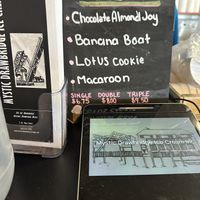 MYSTIC DRAWBRIDGE ICE CREAM
• Chocolate Almond Joy
• Banana Boat
• LOTUS Cookie
• Macaroon
SINGLE DOUBLE TRIPLE
$6.75 $8.00 $9.50
Mystic Drawbridge Ice Cream